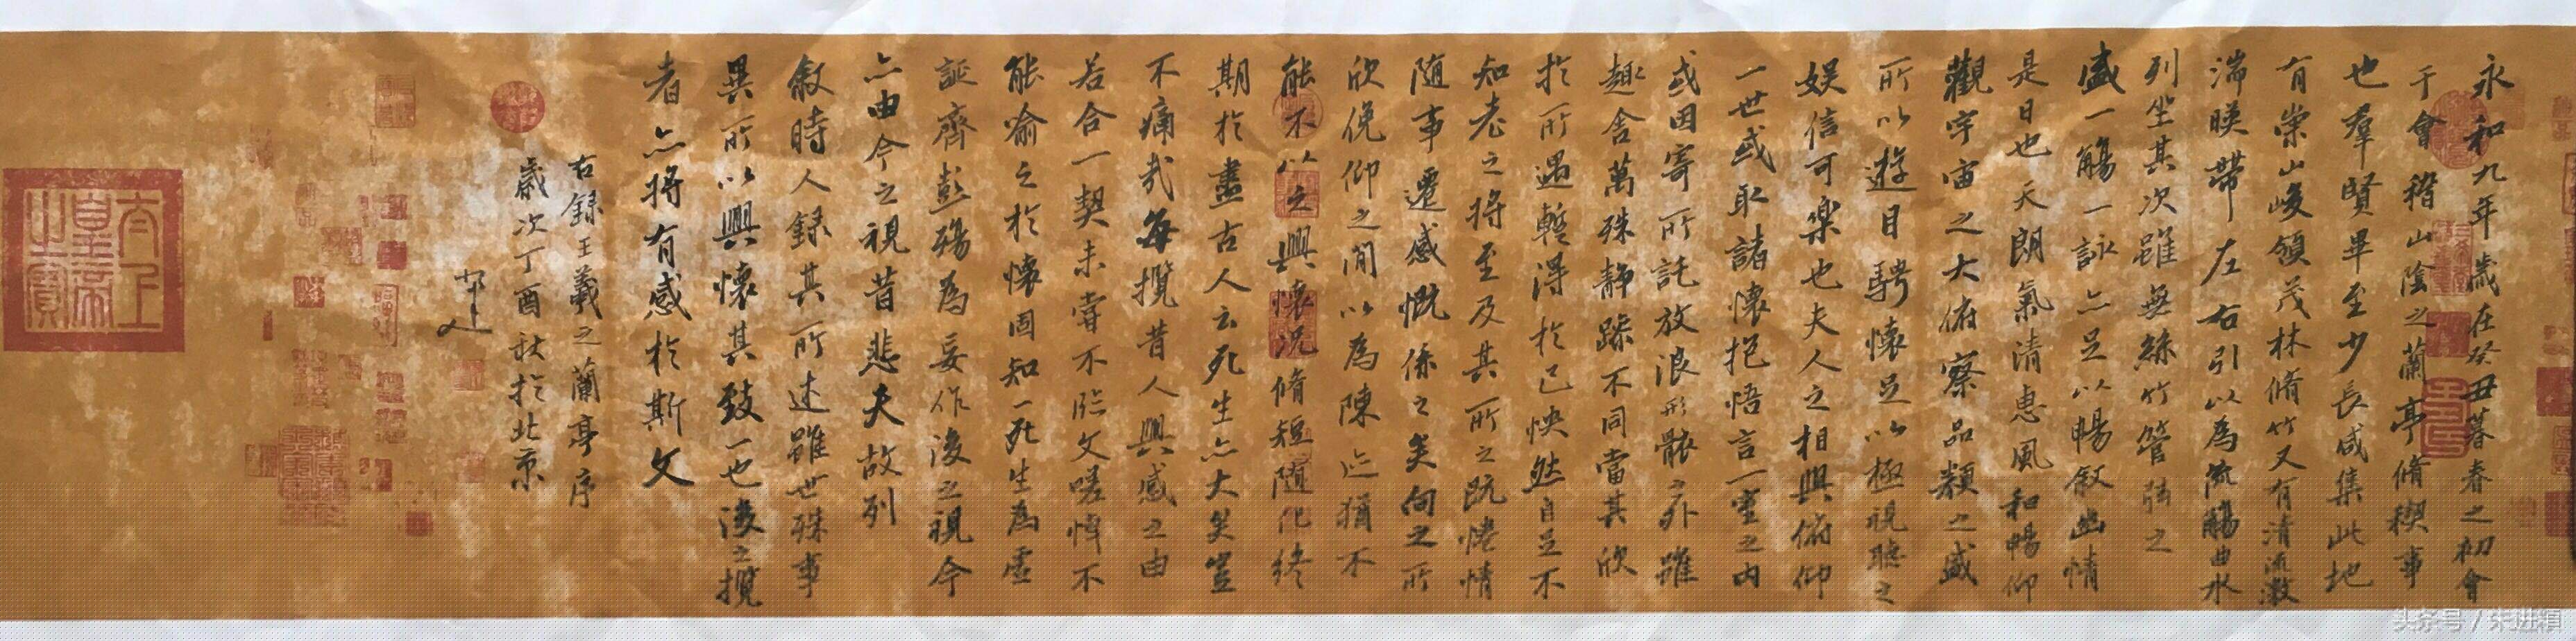 永和九年歲在癸丑暮春之初會
于會稽山陰之蘭亭脩稧事
也羣賢畢至少長咸集此地
有崇山峻領茂林脩竹又有清流激
湍暎帶左右引以為流觴曲水
列坐其次雖無絲竹管弦之
盛一觴一詠亦足以暢叙幽情
是日也天朗氣清惠風和暢仰
觀宇宙之大俯察品類之盛
所以遊目騁懷足以極視聽之
娛信可樂也夫人之相與俯仰
一世或取諸懷抱悟言一室之內
或因寄所託放浪形骸之外雖
趣舍萬殊靜躁不同當其欣
於所遇蹔得於己怏然自足不
知老之將至及其所之既惓情
隨事遷感慨係之矣向之所
欣俛仰之閒以為陳迹猶不
能不以之興懷況脩短隨化終
期於盡古人云死生亦大矣豈
不痛哉每攬昔人興感之由
若合一契未嘗不臨文嗟悼不
能喻之於懷固知一死生為虛
誕齊彭殤為妄作後之視今
亦由今之視昔悲夫故列
叙時人錄其所述雖世殊事
異所以興懷其致一也後之攬
者亦將有感於斯文
右錄王羲之蘭亭序
歲次丁酉秋於北京
太上皇帝之寶
头条号 / 朱进穎